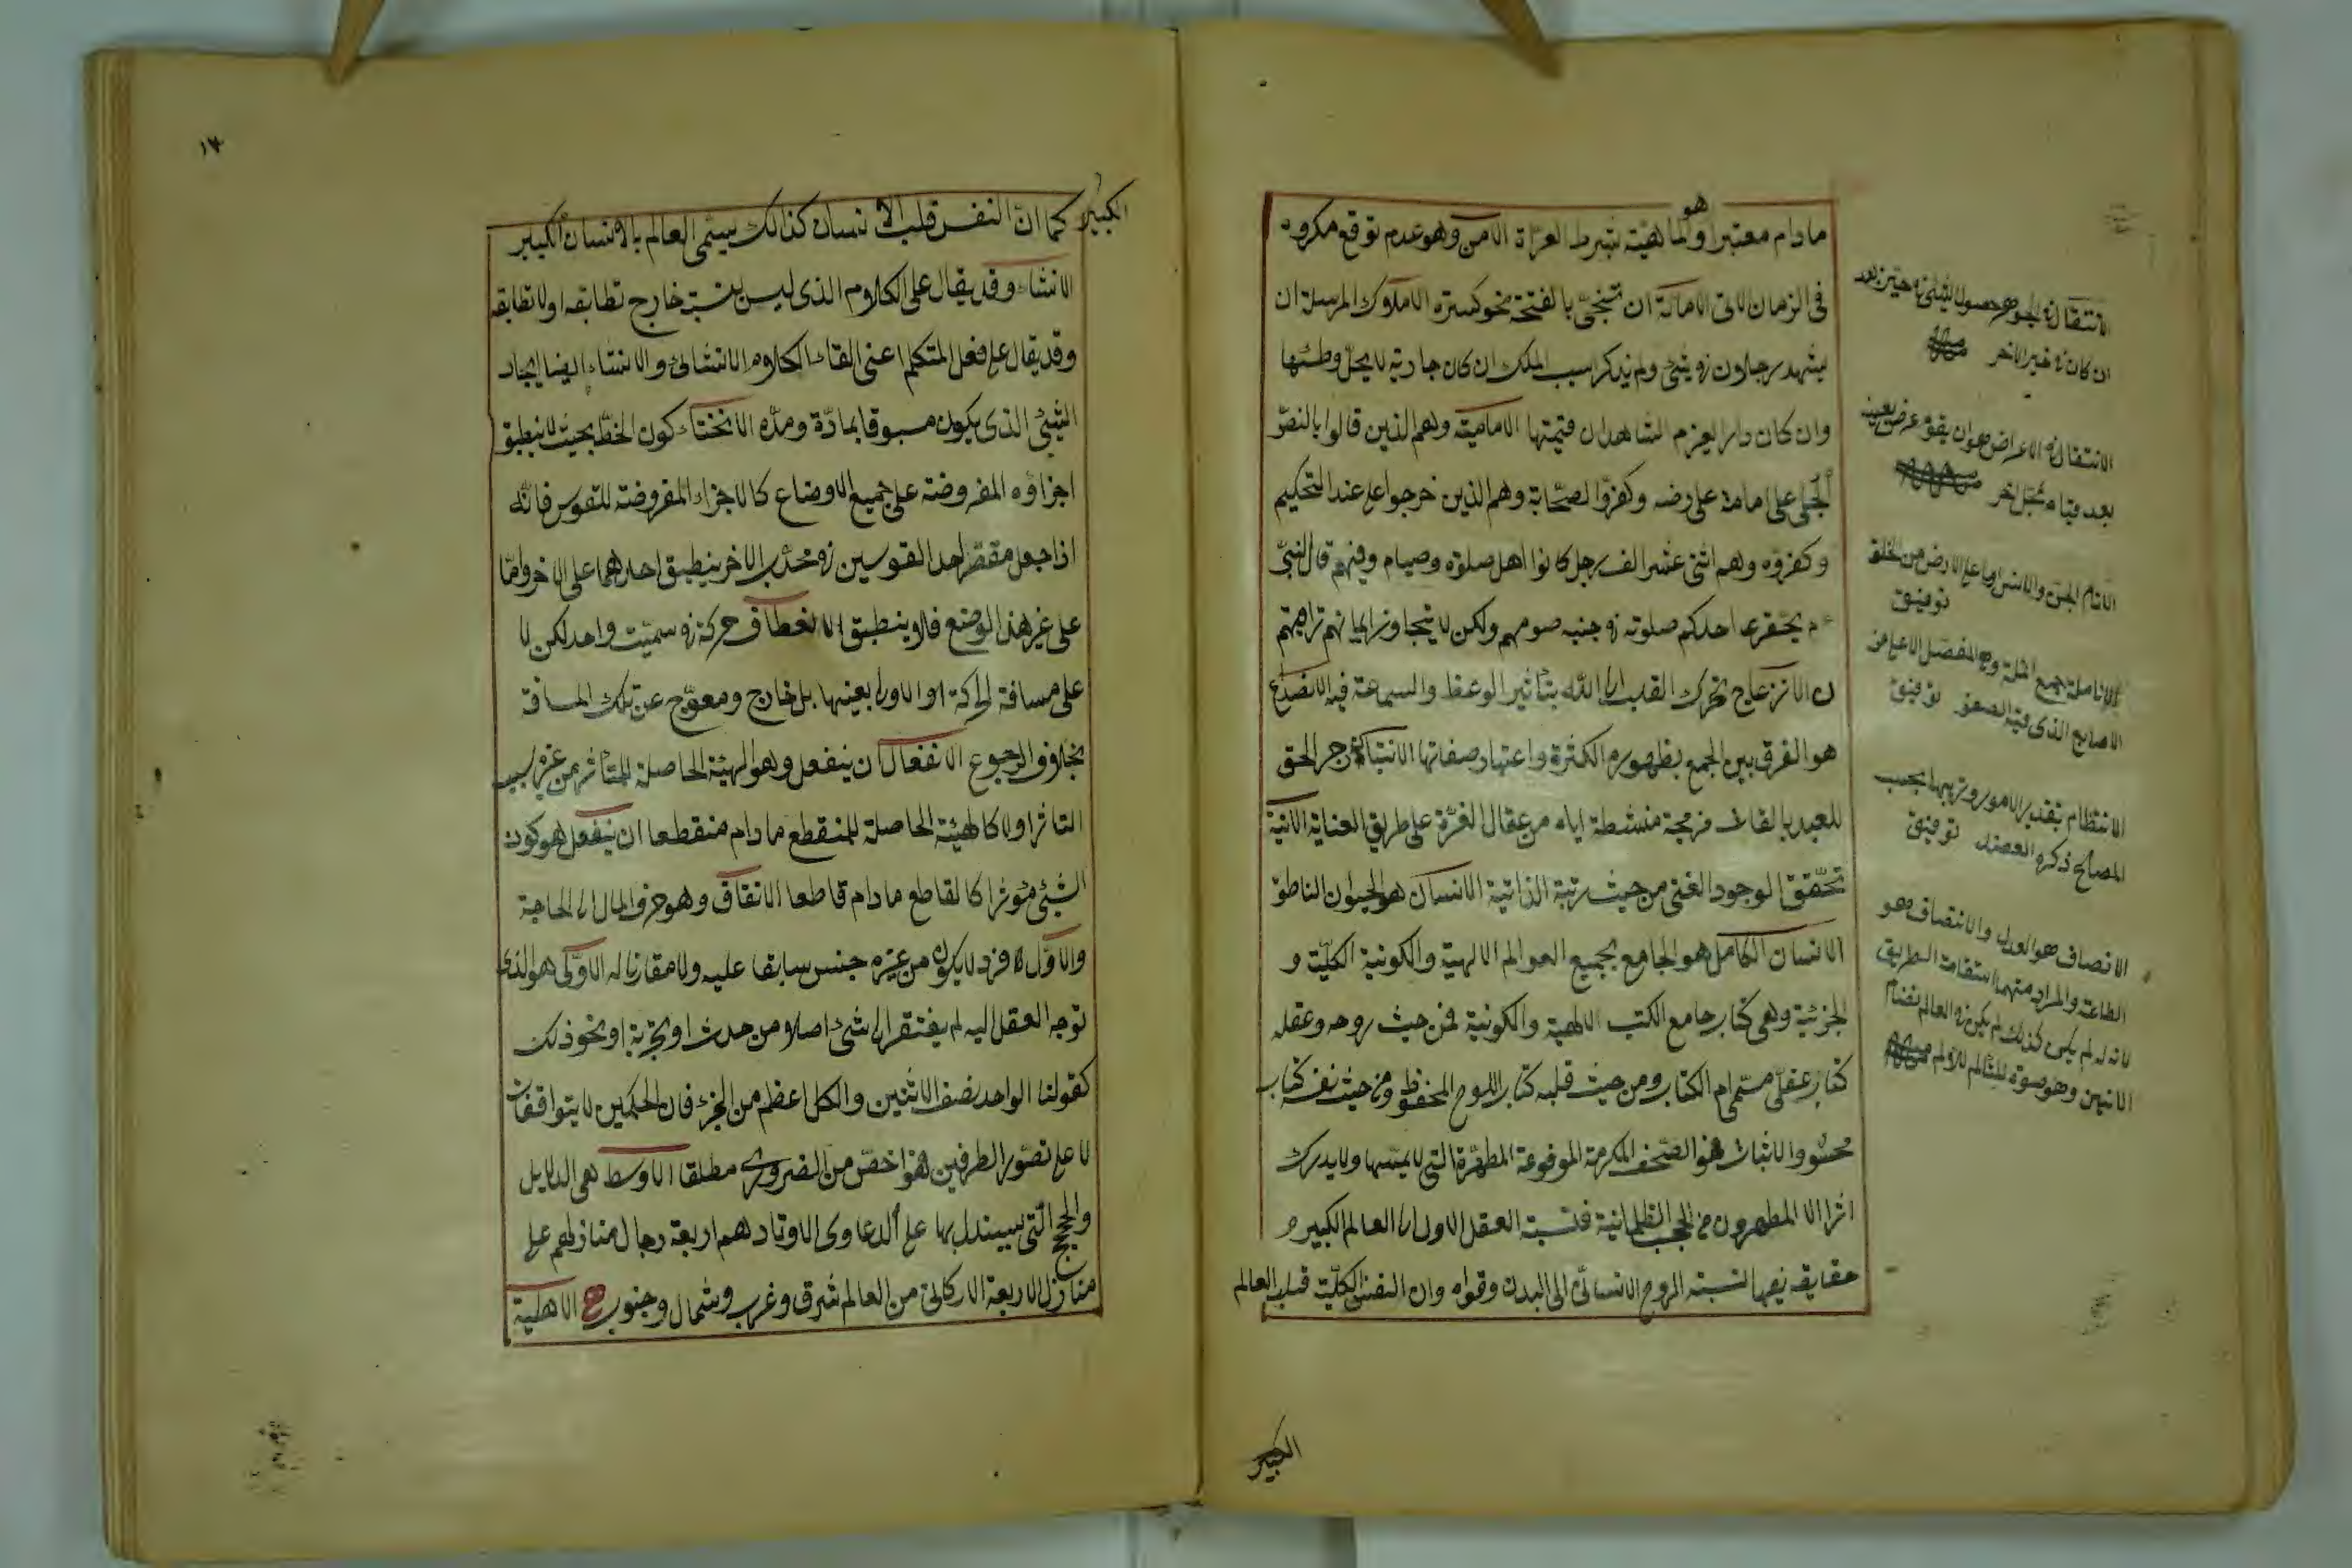 هو
مادام معتبرا والماهية بشرط العراة الامن وهو عدم توقع مكروه
فى الزمان الاتى الامالة ان تنحى بالفتحة نحو كسرة الاملاك المرسلة ان
يشهد رجلان فى شئ ولم يذكرا سبب الملك ان كان جارية لا يحل وطئها
وان كان دارا يغرم الشاهدان قيمتها الامامية وهم الذين قالوا بالنص
الجلى على امامة على رضه وكفروا الصحابة وهم الذين خرجوا على عند التحكيم
وكفروه وهم اثنى عشر الف رجل كانوا اهل صلوة وصيام وفيهم قال النبى
عم يحقر احدكم صلوته فى جنب صومهم ولكن لا يتجاوز ايمانهم تراقيهم
ن الانزعاج تحرك القلب الى الله بتاثير الوعظ والسماعة فيه الانصداع
هو الفرق بين الجمع بظهور الكثرة واعتبار صفاتها الانتباه زجر الحق
للعبد بالقاءات مزعجة منشطة اياه من عقال الغرة على طريق العناية الانية
تحقق الوجود العينى من حيث رتبة الذاتية الانسان هو الحيوان الناطق
الانسان الكامل هو الجامع بجميع العوالم الالهية والكونية الكلية و
الجزئية وهى كتاب جامع الكتب الالهية والكونية فمن حيث روحه وعقله
كتاب عقلى مسمى ام الكتاب ومن حيث قلبه كتاب اللوح المحفوظ ومن حيث نفسه كتاب
محو والاثبات هو الصحف المكرمة المرفوعة المطهرة التى لا يمسها ولا يدرك
اثرا الا المطهرون من الحجب الظلمانية فنسبة العقل الاول الى العالم الكبير و
حقايقه بعينها نسبة الروح الانسانى الى البدن وقواه وان النفس الكلية قلب العالم
الكبير
الانتقال فى الجوهر حصول الشئ فى حيز بعد
ان كان فى حيز الاخر
الانتقال فى الاعراض هو ان يقوم عرض بعينه
بعد قيامه بمحل اخر
الانام الجن والانس او ما على الارض من الخلق
توفيق
توفيق
الانتظام تقدير الامور وترتيبها بحسب
المصالح ذكره العضد توفيق
الانصاف هو العدل والانتصاف هو
الطاعة والمراد منهما استقامة الطريق
لانه لو لم يكن كذلك لم يكن فى العالم نظام
١٣
الكبير كما ان النفس قلب الانسان كذلك يسمى العالم بالانسان الكبير
الانشاء وقد يقال على الكلام الذى ليس لنسبته خارج تطابقه او لا تطابقه
وقد يقال على فعل المتكلم اعنى القاء الكلام الانشائى والانشاء ايضا ايجاد
الشئ الذى يكون مسبوقا بمادة ومدة الانحناء كون الخط بحيث لا ينطبق
اجزاؤه المفروضة على جميع الاوضاع كالاجزاء المفروضة للقوس فانه
اذا جعل مقعر احد القوسين فى محدب الاخر ينطبق احدهما على الاخر واما
على غير هذا الوضع فلا ينطبق الانعطاف حركة فى سمت واحد لكن لا
على مسافة الحركة الاولى بعينها بل خارج ومعوج عن تلك المسافة
بخلاف الرجوع الانفعال ان ينفعل وهو الهيئة الحاصلة للمتاثر من غيره بسبب
التاثر اولا كالهيئة الحاصلة للمنقطع ما دام منقطعا ان يفعل هو كون
الشئ مؤثرا كالقاطع ما دام قاطعا الانفاق وهو صرف المال الى الحاجة
والاول فرد لا يكون من غيره جنس سابقا عليه ولا مقارنا له الاولى هو الذى
توجه العقل اليه لم يفتقر الى شئ اصلا من حدث او تجربة او نحو ذلك
كقولنا الواحد نصف الاثنين والكل اعظم من الجزء فان الحكمين لا يتوافقان
لا على تصور الطرفين هو اخص من الضرورى مطلقا الاوسط هى الدلايل
والحجج التى يستدل بها على الدعاوى الاوتاد هم اربعة رجال منازلهم على
منازل الاربعة الاركان من العالم شرق وغرب وشمال وجنوب الاهلية